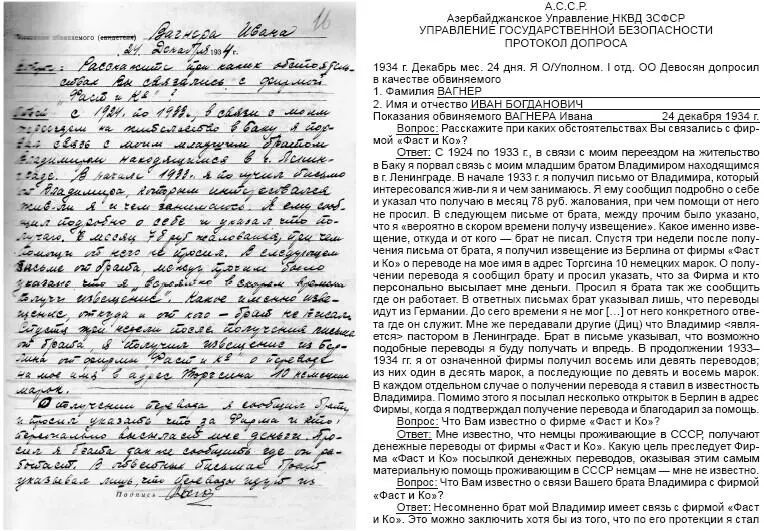 16
Показания обвиняемого (свидетеля) Вагнера Ивана
24 Декабря 1934 г.
Вопрос: Расскажите при каких обстоятель-
ствах Вы связались с фирмой
„Фаст и Ко"?
Ответ: С 1924 по 1933 г., в связи с моим
переездом на жительство в Баку я пор-
вал связь с моим младшим братом
Владимиром находящимся в г. Ленин-
граде. В начале 1933 г. я получил письмо
от Владимира, который интересовался
жив-ли я и чем занимаюсь. Я ему сооб-
щил подробно о себе и указал что по-
лучаю в месяц 78 руб. жалования, при чем
помощи от него не просил. В следующем
письме от брата, между прочим было
указано что я „вероятно в скором времени
получу извещение". Какое именно изве-
щение, откуда и от кого – брат не писал.
Спустя три недели после получения письма
от брата, я получил извещение из Бер-
лина от фирмы „Фаст и Ко" о переводе
на мое имя в адрес Торгсина 10 немецких
марок.
О получении перевода я сообщил брату
и просил указать что за Фирма и кто
персонально высылает мне деньги. Про-
сил я брата так же сообщить где он ра-
ботает. В ответных письмах брат
указывал лишь, что переводы идут из
Подпись
А.С.С.Р.
Азербайджанское Управление НКВД ЗСФСР
УПРАВЛЕНИЕ ГОСУДАРСТВЕННОЙ БЕЗОПАСНОСТИ
ПРОТОКОЛ ДОПРОСА
1934 г. Декабрь мес. 24 дня. Я О/Уполном. I отд. ОО Девосян допросил
в качестве обвиняемого
1. Фамилия ВАГНЕР
2. Имя и отчество ИВАН БОГДАНОВИЧ
Показания обвиняемого ВАГНЕРА Ивана 24 декабря 1934 г.
Вопрос: Расскажите при каких обстоятельствах Вы связались с фир-
мой «Фаст и Ко»?
Ответ: С 1924 по 1933 г., в связи с моим переездом на жительство
в Баку я порвал связь с моим младшим братом Владимиром находящимся
в г. Ленинграде. В начале 1933 г. я получил письмо от Владимира, который
интересовался жив-ли я и чем занимаюсь. Я ему сообщил подробно о себе
и указал что получаю в месяц 78 руб. жалования, при чем помощи от него
не просил. В следующем письме от брата, между прочим было указано,
что я «вероятно в скором времени получу извещение». Какое именно изве-
щение, откуда и от кого — брат не писал. Спустя три недели после полу-
чения письма от брата, я получил извещение из Берлина от фирмы «Фаст
и Ко» о переводе на мое имя в адрес Торгсина 10 немецких марок. О полу-
чении перевода я сообщил брату и просил указать, что за Фирма и кто
персонально высылает мне деньги. Просил я брата так же сообщить
где он работает. В ответных письмах брат указывал лишь, что переводы
идут из Германии. До сего времени я не мог [...] от него конкретного отве-
та где он служит. Мне же передавали другие (Диц) что Владимир <явля-
ется> пастором в Ленинграде. Брат в письме указывал, что возможно
подобные переводы я буду получать и впредь. В продолжении 1933–
1934 гг. я от означенной фирмы получил восемь или девять переводов;
из них один в десять марок, а последующие по девять и восемь марок.
В каждом отдельном случае о получении перевода я ставил в известность
Владимира. Помимо этого я посылал несколько открыток в Берлин в адрес
Фирмы, когда я подтверждал получение перевода и благодарил за помощь.
Вопрос: Что Вам известно о фирме «Фаст и Ко»?
Ответ: Мне известно, что немцы проживающие в СССР, получают
денежные переводы от фирмы «Фаст и Ко». Какую цель преследует Фир-
ма «Фаст и Ко» посылкой денежных переводов, оказывая этим самым
материальную помощь проживающим в СССР немцам — мне не известно.
Вопрос: Что Вам известно о связи Вашего брата Владимира с фирмой
«Фаст и Ко»?
Ответ: Несомненно брат мой Владимир имеет связь с фирмой «Фаст
и Ко». Это можно заключить хотя бы из того, что по его протекции я стал